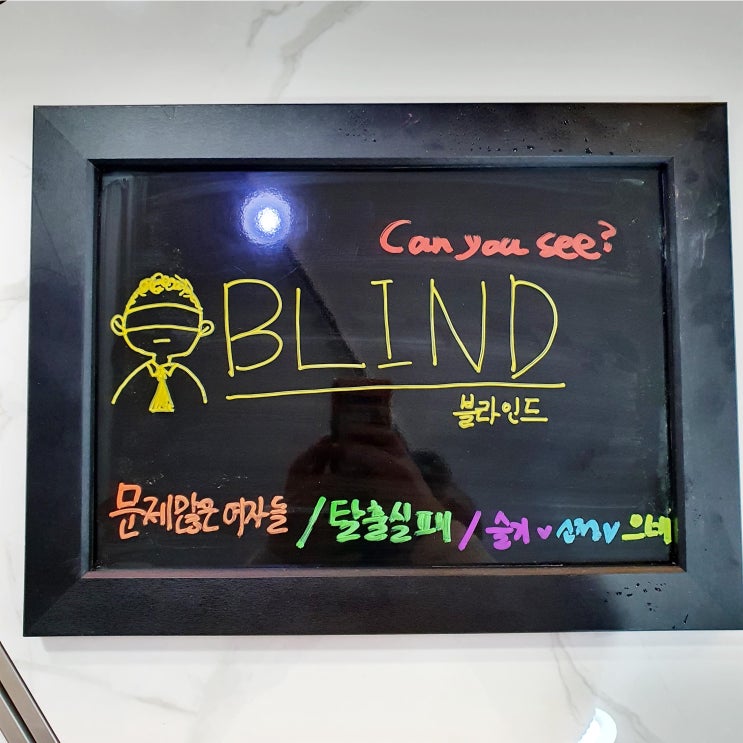 Can you see?
BLIND
블라인드
문제많은 여자들 / 탈출실패 / 슬기 ♥ ♥ 으베